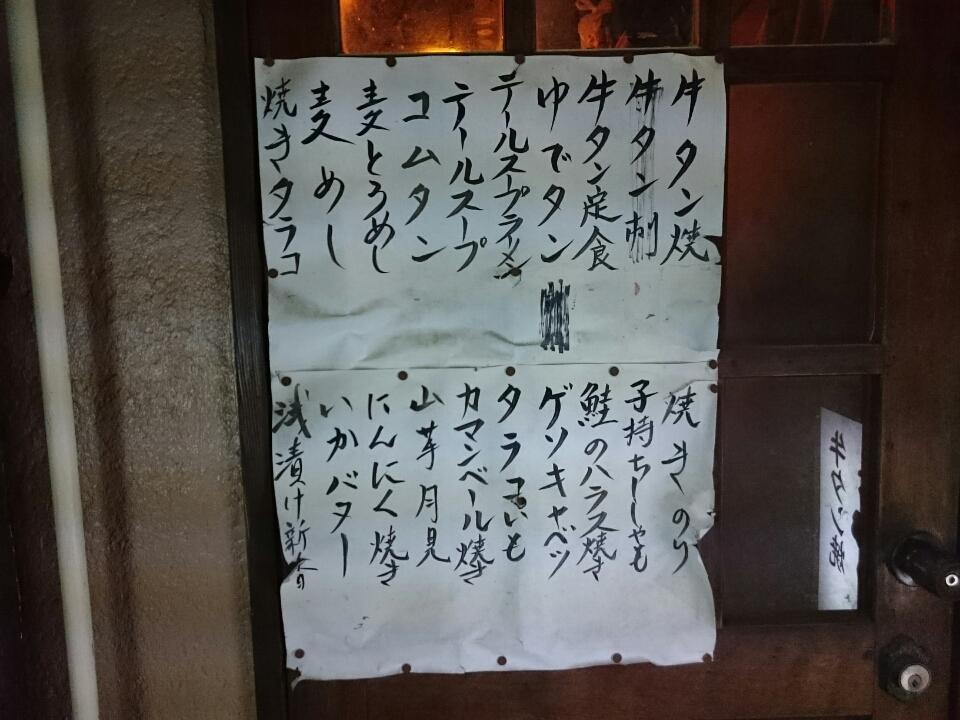 牛タン焼
牛タン刺
牛タン定食
ゆでタン
テールスープラーメン
テールスープ
コムタン
麦とろめし
麦めし
焼きタラコ
焼きのり
子持ちししゃも
鮭のハラス焼き
ゲソキャベツ
タラコいも
カマンベール焼き
山芋月見
にんにく焼き
いかバター
浅漬け新香
牛タン焼